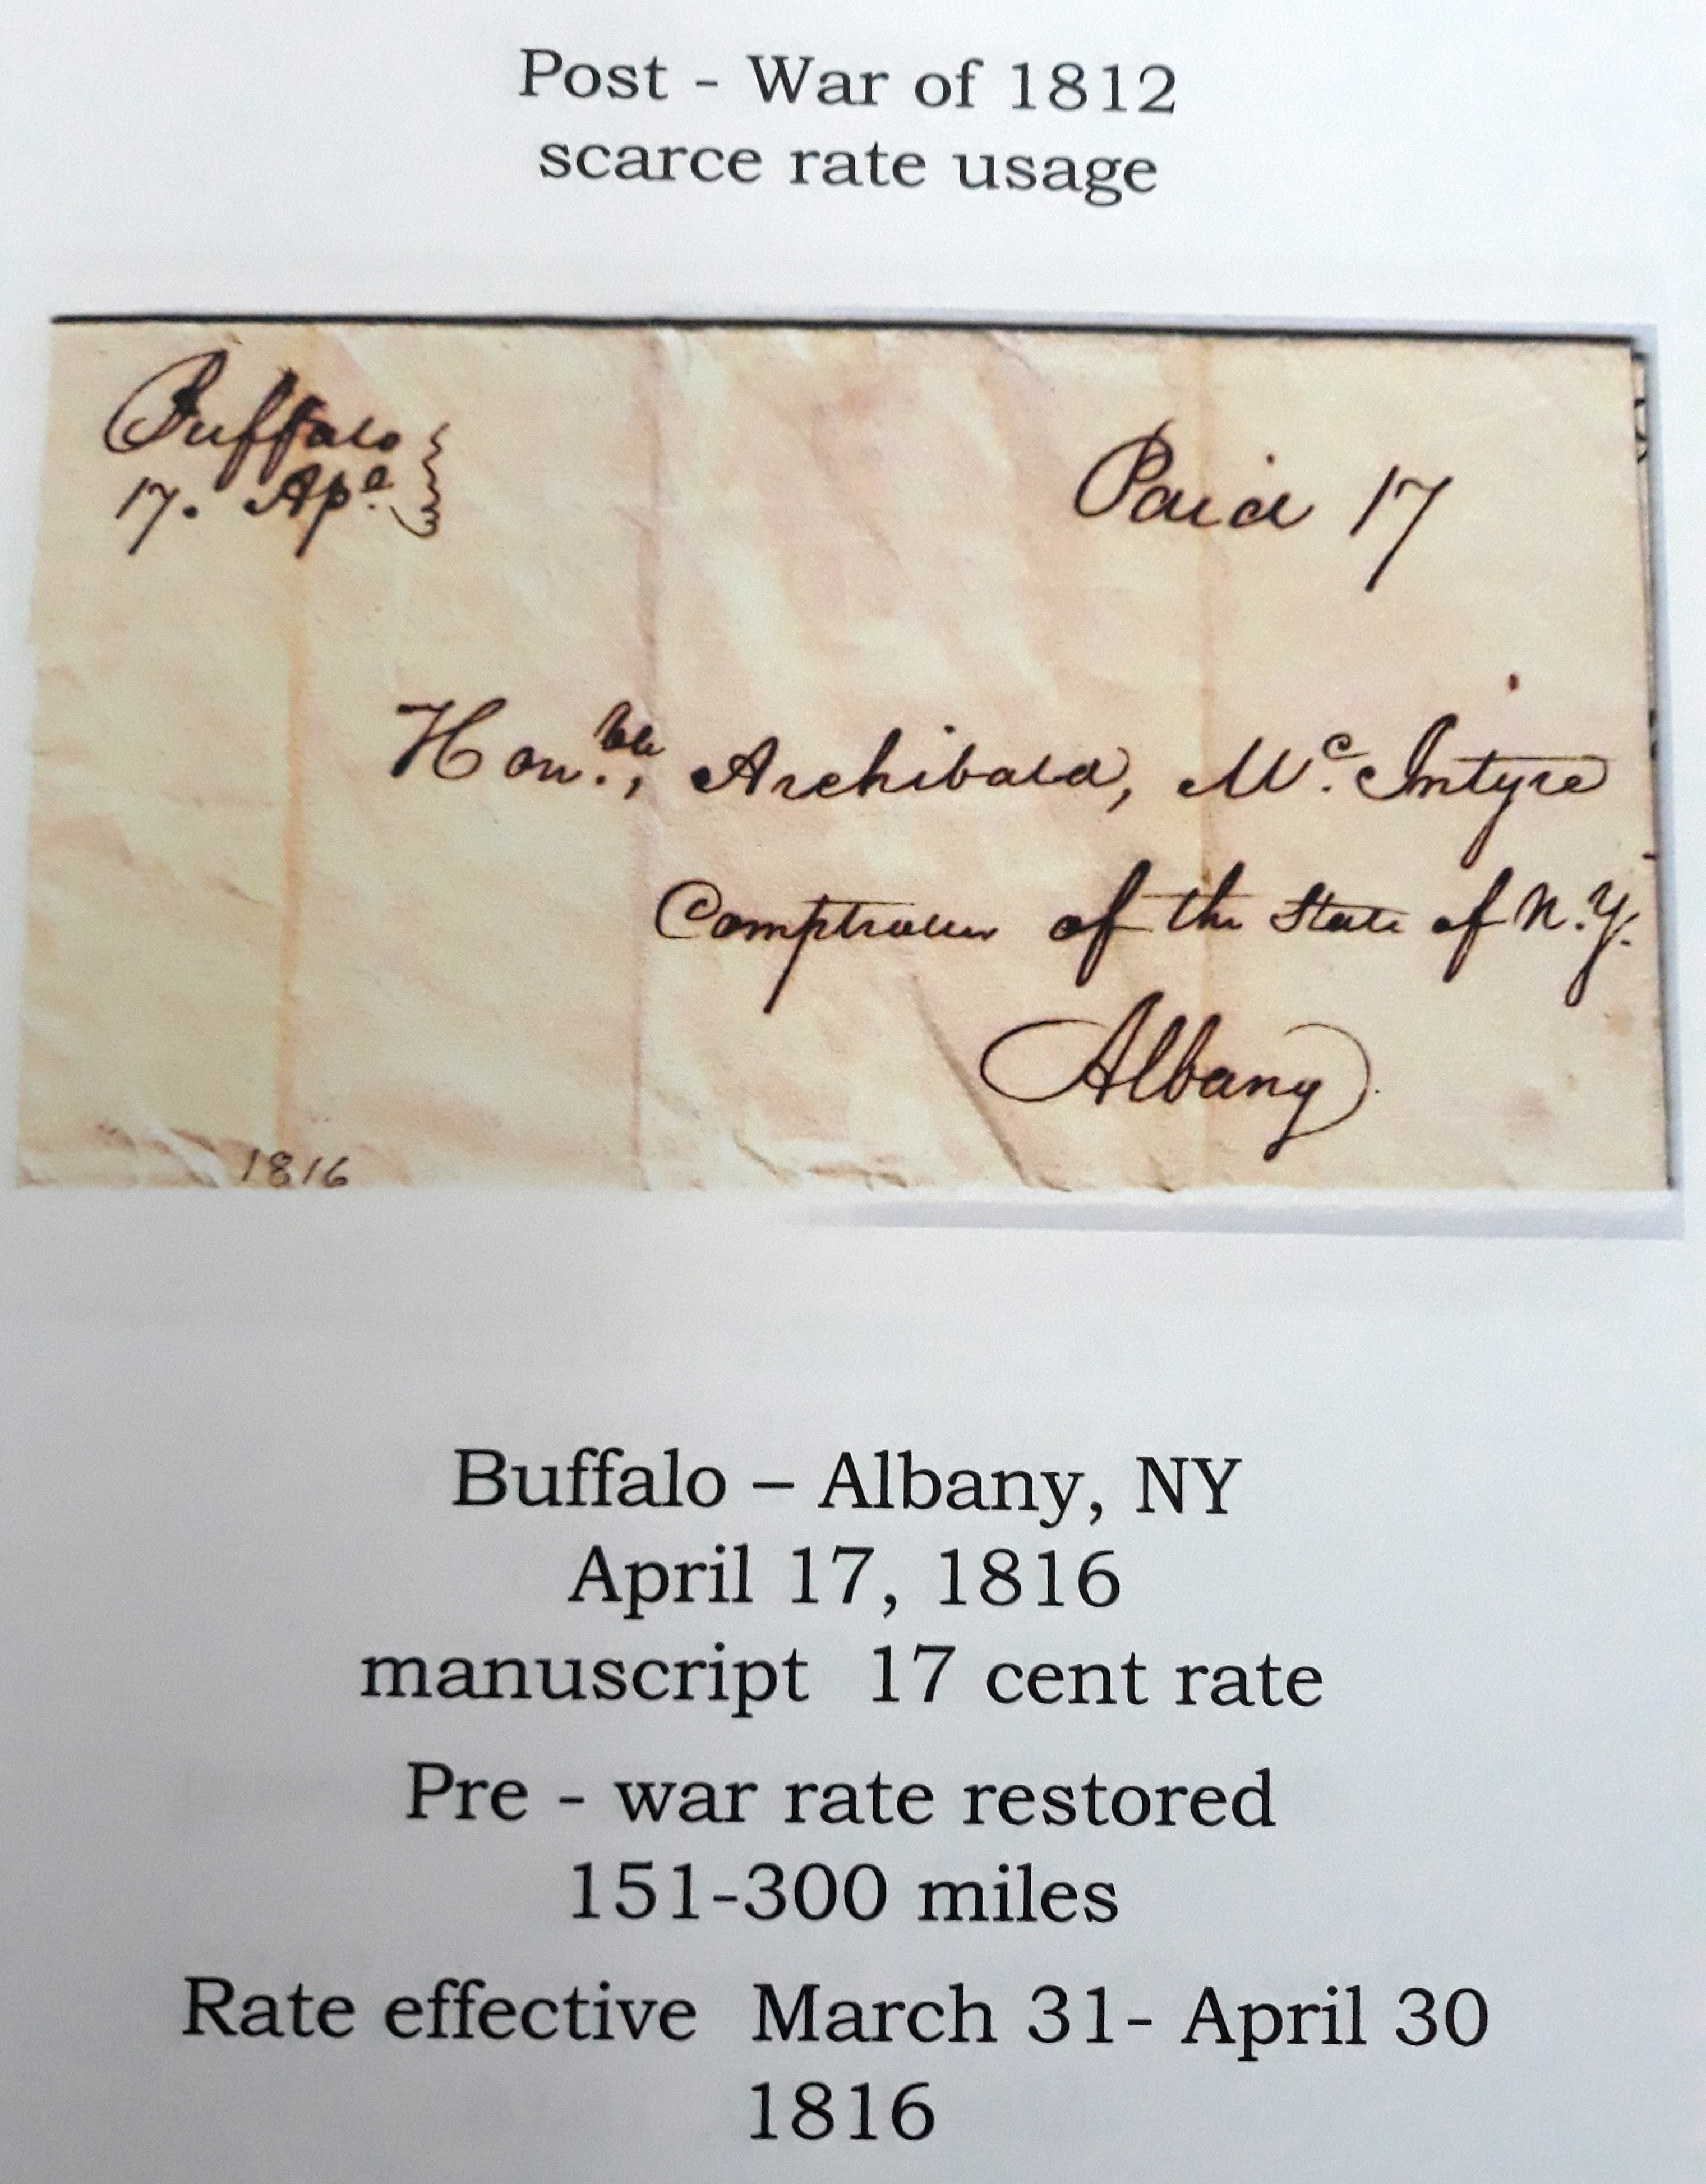 Post - War of 1812
scarce rate usage
Buffalo
17. Apl
Paid 17
Honble, Archibald, Mc. Intyre
Comptroller of the State of N.Y.
Albany
1816
Buffalo – Albany, NY
April 17, 1816
manuscript 17 cent rate
Pre - war rate restored
151-300 miles
Rate effective March 31- April 30
1816